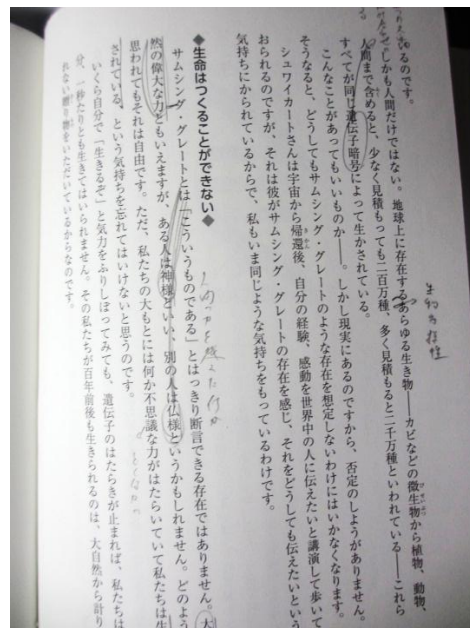 るのです。
しかも人間だけではない。地球上に存在するあらゆる生き物――カビなどの微生物から植物、動物、
人間まで含めると、少なく見積もっても二百万種、多く見積もると二千万種といわれている――これら
すべてが同じ遺伝子暗号によって生かされている。
こんなことがあってもいいものか――。しかし現実にあるのですから、否定のしようがありません。
そうなると、どうしてもサムシング・グレートのような存在を想定しないわけにはいかなくなります。
シュワイカートさんは宇宙から帰還後、自分の経験、感動を世界中の人に伝えたいと講演して歩いて
おられるのですが、それは彼がサムシング・グレートの存在を感じ、それをどうしても伝えたいという
気持ちにかられているからで、私もいま同じような気持ちをもっているわけです。
◆生命はつくることができない◆
サムシング・グレートとは「こういうものである」とはっきり断言できる存在ではありません。大
然の偉大な力ともいえますが、ある人は神様といい、別の人は仏様というかもしれません。どのよう
思われてもそれは自由です。ただ、私たちの大もとには何か不思議な力がはたらいていて私たちは生
されている、という気持ちを忘れてはいけないと思うのです。
いくら自分で「生きるぞ」と気力をふりしぼってみても、遺伝子のはたらきが止まれば、私たちは
分、一秒たりとも生きてはいられません。その私たちが百年前後も生きられるのは、大自然から計り
れない贈り物をいただいているからなのです。
生物多様性
人間の力を越えた何か